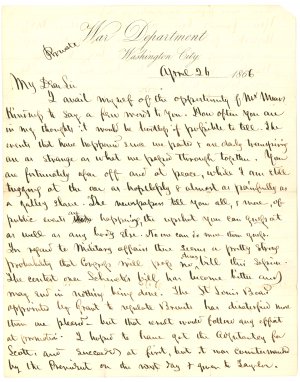 War Department
Private
Washington City.
April 26 1866
My Dear Sir
I avail myself of the opportunity of Mr
to say a few words to you. How often you are
in my thoughts it would be useless if possible to tell. The
events that have happened since we parted & are daily happening
are as strange as what we passed through together. You
are fortunately far off and at peace, while I am still
tugging at the oar as hopelessly & almost as painfully as
a galley slave. The newspapers tell you all, & more, of
public events happening, the upshot you can guess at
as well as any body else. No one can do more than guess.
In regard to Military affairs there seems a pretty strong
probability that Congress will pass any bill this Session.
The contest over Schenck's bill has become bitter and
may end in nothing being done. The St Louis Board
appointed by Grant to regulate Brevets has dissatisfied more
than are pleased but that result would follow any effort
at promotion. I hoped to have got the Adjutancy for
Scott, and succeeded at first, but it was countermanded
by the President on the next day & given to Taylor.